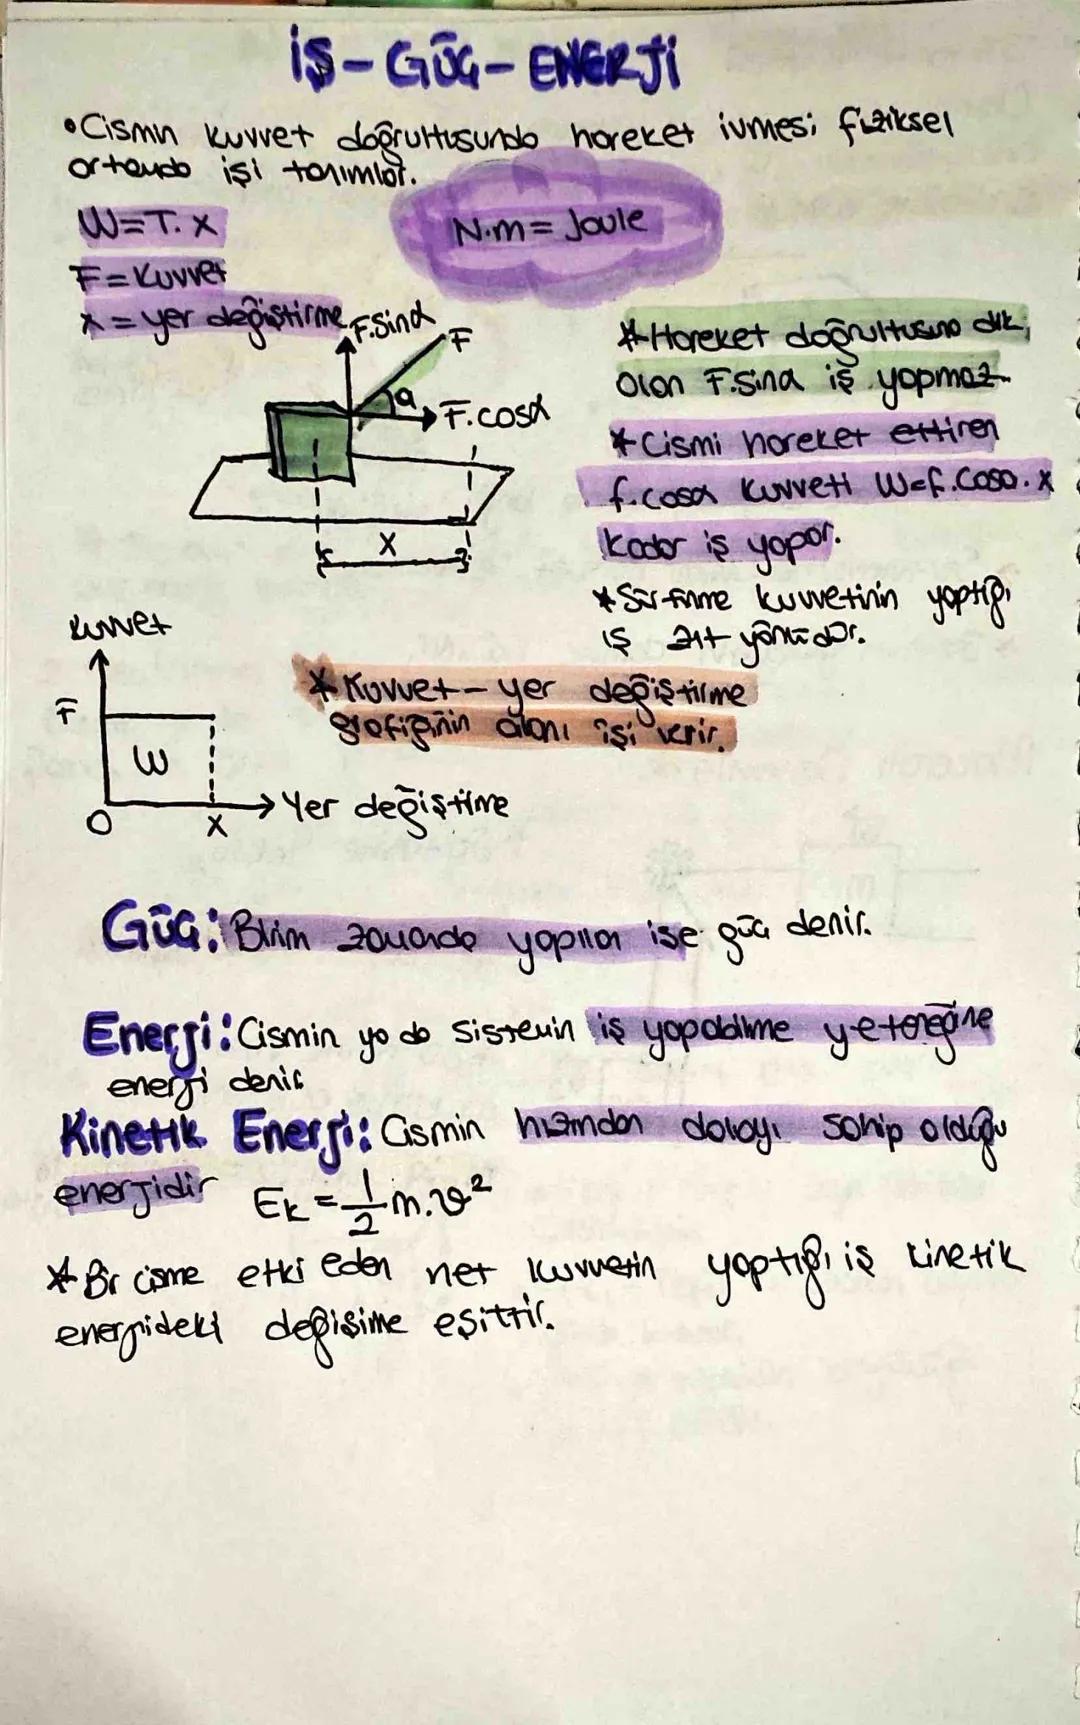 İŞ-GÜÇ-ENERJİ
•Cismin kuvvet doğrultusunda hareket ivmesi fiziksel
ortamda işi tanımlar.
W=T.X
N.m= Joule
F=Kuvvet
x= yer değiştirme
F.Sinα
F
a
F.cosα
X
*Hareket doğrultusuna dik
olan F.Sina iş yapmaz
*Cismi hareket ettiren
f.cosα kuvveti W=f.Cosα.x
Kadar iş yapar.
*Sürtünme kuvvetinin yaptığı
iş zıt yönlüdür.
kuvvet
F
W
O
X
Yer değiştirme
*Kuvvet-yer değiştirme
grafiğinin alanı işi verir.
GÜÇ: Birim zamanda yapılan işe güç denir.
Enerji: Cismin ya da sistemin iş yapabilme yeteneğine
enerji denir
Kinetik Enerji: Cismin hızından dolayı sahip olduğu
enerjidir Ek=1/2 m.v²
*Bir cisme etki eden net kuvvetin yaptığı iş kinetik
enerjideki değişime eşittir.